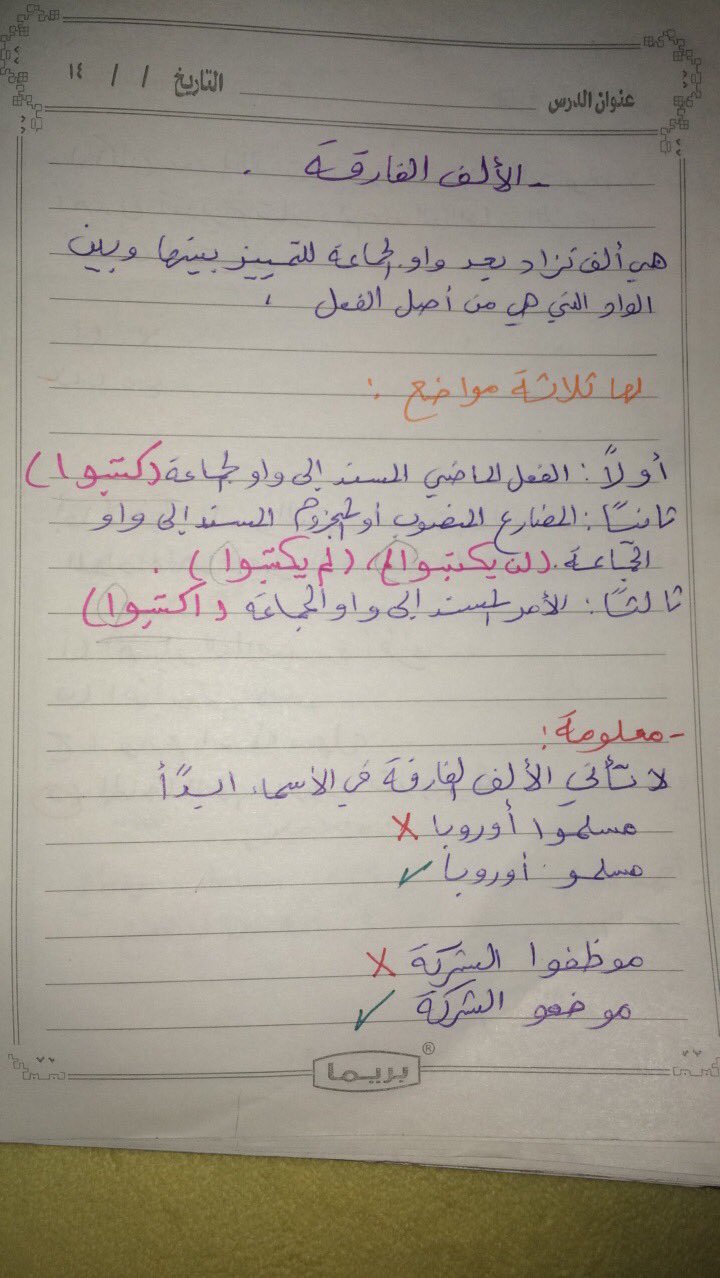 عنوان الدرس التاريخ / / ١٤
- الألف الفارقة .
هي ألف تزاد بعد واو الجماعة للتمييز بينها وبين
الواو التي هي من أصل الفعل .
لها ثلاثة مواضع :
أولاً : الفعل الماضي المسند إلى واو الجماعة (كتبوا)
ثانياً : المضارع المنصوب أو المجزوم المسند إلى واو
الجماعة . (لن يكتبوا) (لم يكتبوا) .
ثالثاً : الأمر المسند إلى واو الجماعة (اكتبوا)
- معلومة :
لا تأتي الألف الفارقة في الأسماء ابداً
مسلموا أوروبا X
مسلمو أوروبا ✓
موظفوا الشركة X
موضفو الشركة ✓
بريما ®